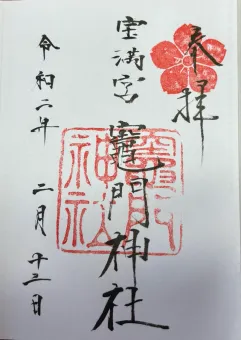 奉拝
宝満宮 竈門神社
令和二年 二月 十三日
竈門
神社